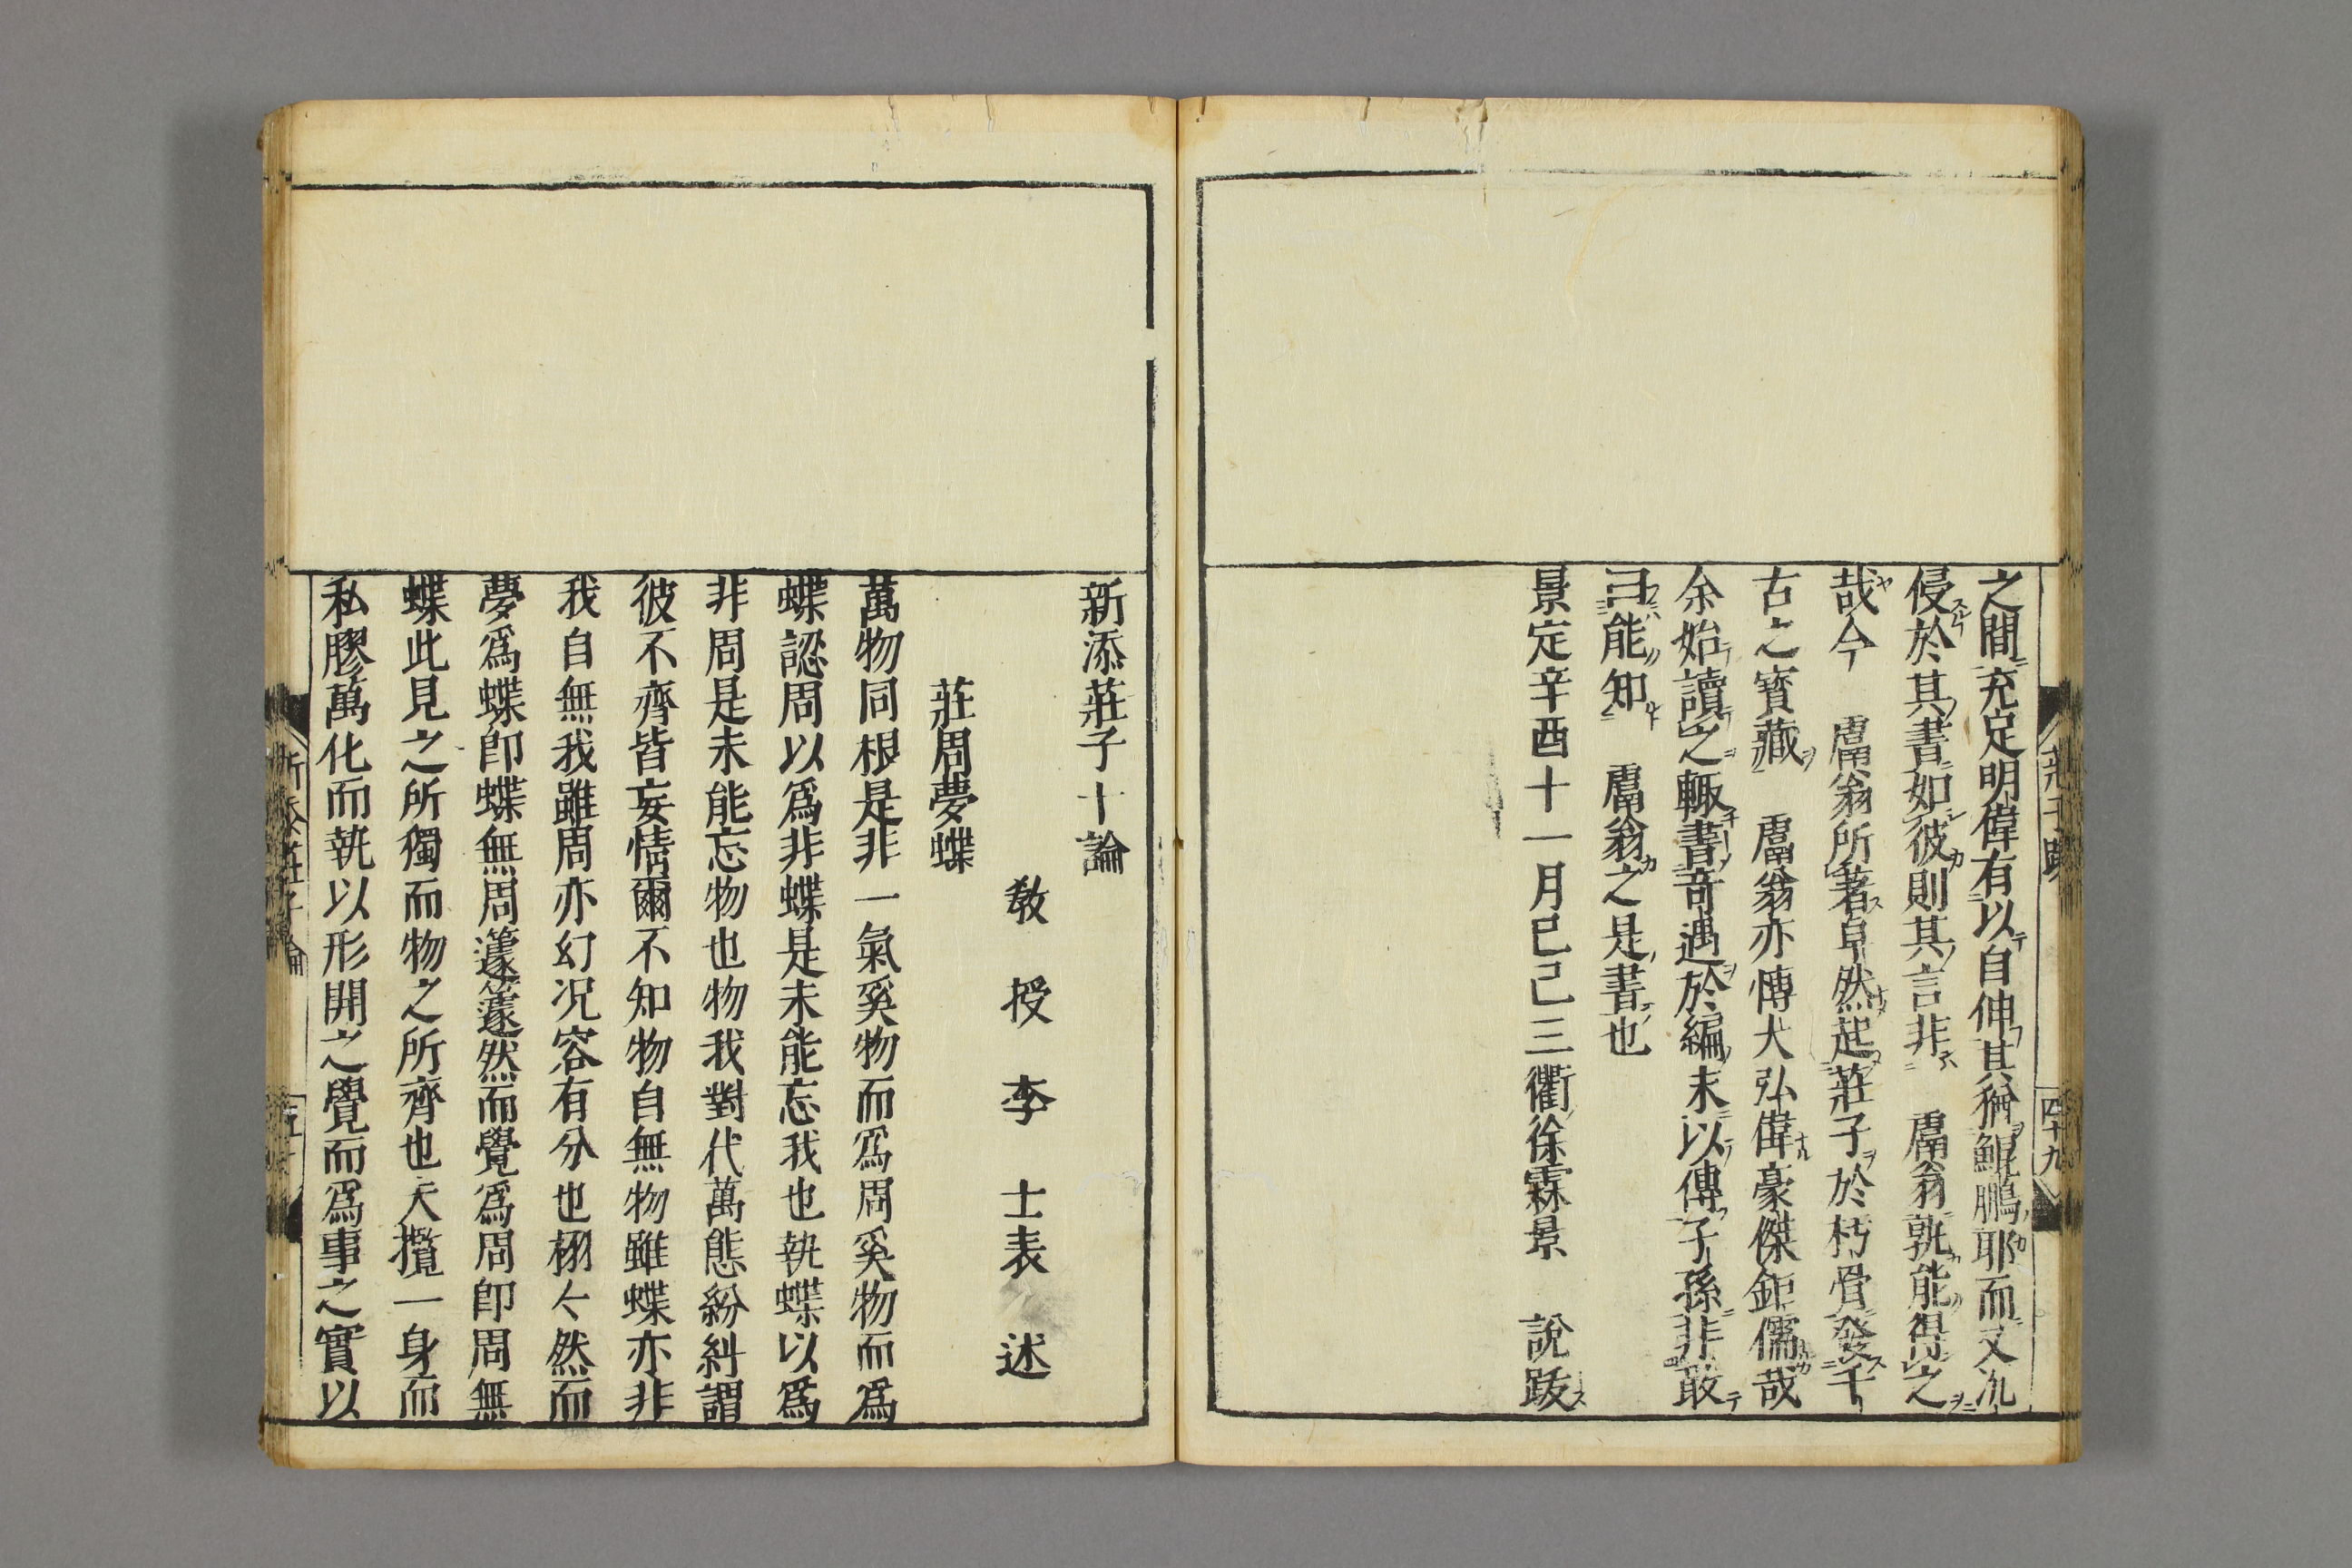 之間充定明偉有以自伸其猶鯤鵬耶而又沈
侵於其書如彼則其言非　鬳翁孰能得之
哉今　鬳翁所著卓然起莊子於朽骨發千
古之寳藏　鬳翁亦愽大弘偉豪傑鉅儒哉
余始讀之輙書奇遇於編末以傳子孫非敢
曰能知　鬳翁之是書也
景定辛酉十一月己巳三衢徐霖景　說跋
四十九
新添莊子十論
教授李士表述
莊周夢蝶
萬物同根是非一氣奚物而爲周奚物而爲
蝶認周以爲非蝶是未能忘我也執蝶以爲
非周是未能忘物也物我對代萬態紛糾謂
彼不齊皆妄情爾不知物自無物雖蝶亦非
我自無我雖周亦幻况容有分也栩〻然而
夢爲蝶卽蝶無周蘧蘧然而覺爲周卽周無
蝶此見之所獨而物之所齊也夫攬一身而
私膠萬化而執以形開之覺而爲事之實以